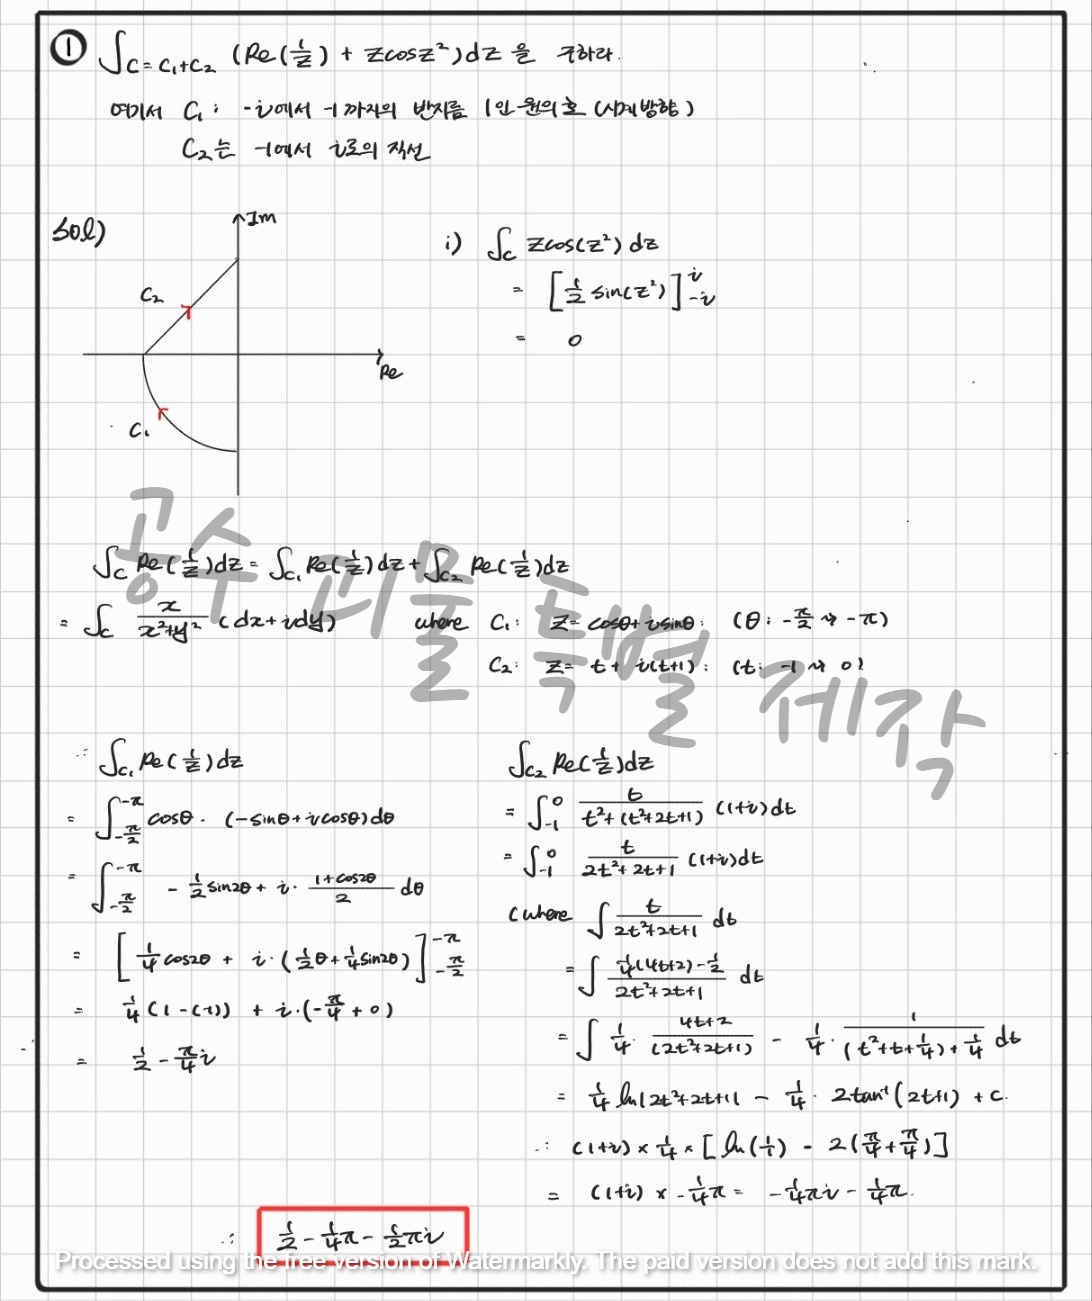 ① ∫_{C=C₁+C₂} (Re(1/z) + zcosz²)dz 을 구하라.
여기서 C₁: -i에서 -1까지의 반지름 1인 원의 호 (시계방향)
C₂는 -1에서 i로의 직선
Sol)
Im
Re
C₂
C₁
i) ∫_C zcos(z²) dz
= [1/2 sin(z²)]_{-i}^{i}
= 0
∫_C Re(1/z)dz = ∫_{C₁} Re(1/z)dz + ∫_{C₂} Re(1/z)dz
= ∫_C x/(x²+y²) (dx+idy) where C₁: z=cosθ+isinθ: (θ: -π/2 ⇝ -π)
C₂: z= t+i(t+1): (t: -1 ⇝ 0)
∴ ∫_{C₁} Re(1/z)dz
= ∫_{-π/2}^{-π} cosθ·(-sinθ+icosθ)dθ
= ∫_{-π/2}^{-π} -1/2 sin2θ + i·(1+cos2θ)/2 dθ
= [1/4 cos2θ + i·(1/2 θ + 1/4 sin2θ)]_{-π/2}^{-π}
= 1/4 (1-(-1)) + i·(-π/4+0)
= 1/2 - π/4 i
∫_{C₂} Re(1/z)dz
= ∫_{-1}^{0} t/(t²+(t²+2t+1)) (1+i)dt
= ∫_{-1}^{0} t/(2t²+2t+1) (1+i)dt
(where ∫ t/(2t²+2t+1) dt
= ∫ (1/4(4t+2)-1/2)/(2t²+2t+1) dt
= ∫ 1/4 · (4t+2)/(2t²+2t+1) - 1/4 · 1/((t²+t+1/4)+1/4) dt
= 1/4 ln|2t²+2t+1| - 1/4 · 2tan⁻¹(2t+1) + C.
∴ (1+i) × 1/4 × [ln(1/1) - 2(π/4+π/4)]
= (1+i) × -1/4 π = -1/4 πi - 1/4 π.
∴ 1/2 - 1/4 π - 1/2 πi
공수 괴물 특별 제작
Processed using the free version of Watermarkly. The paid version does not add this mark.